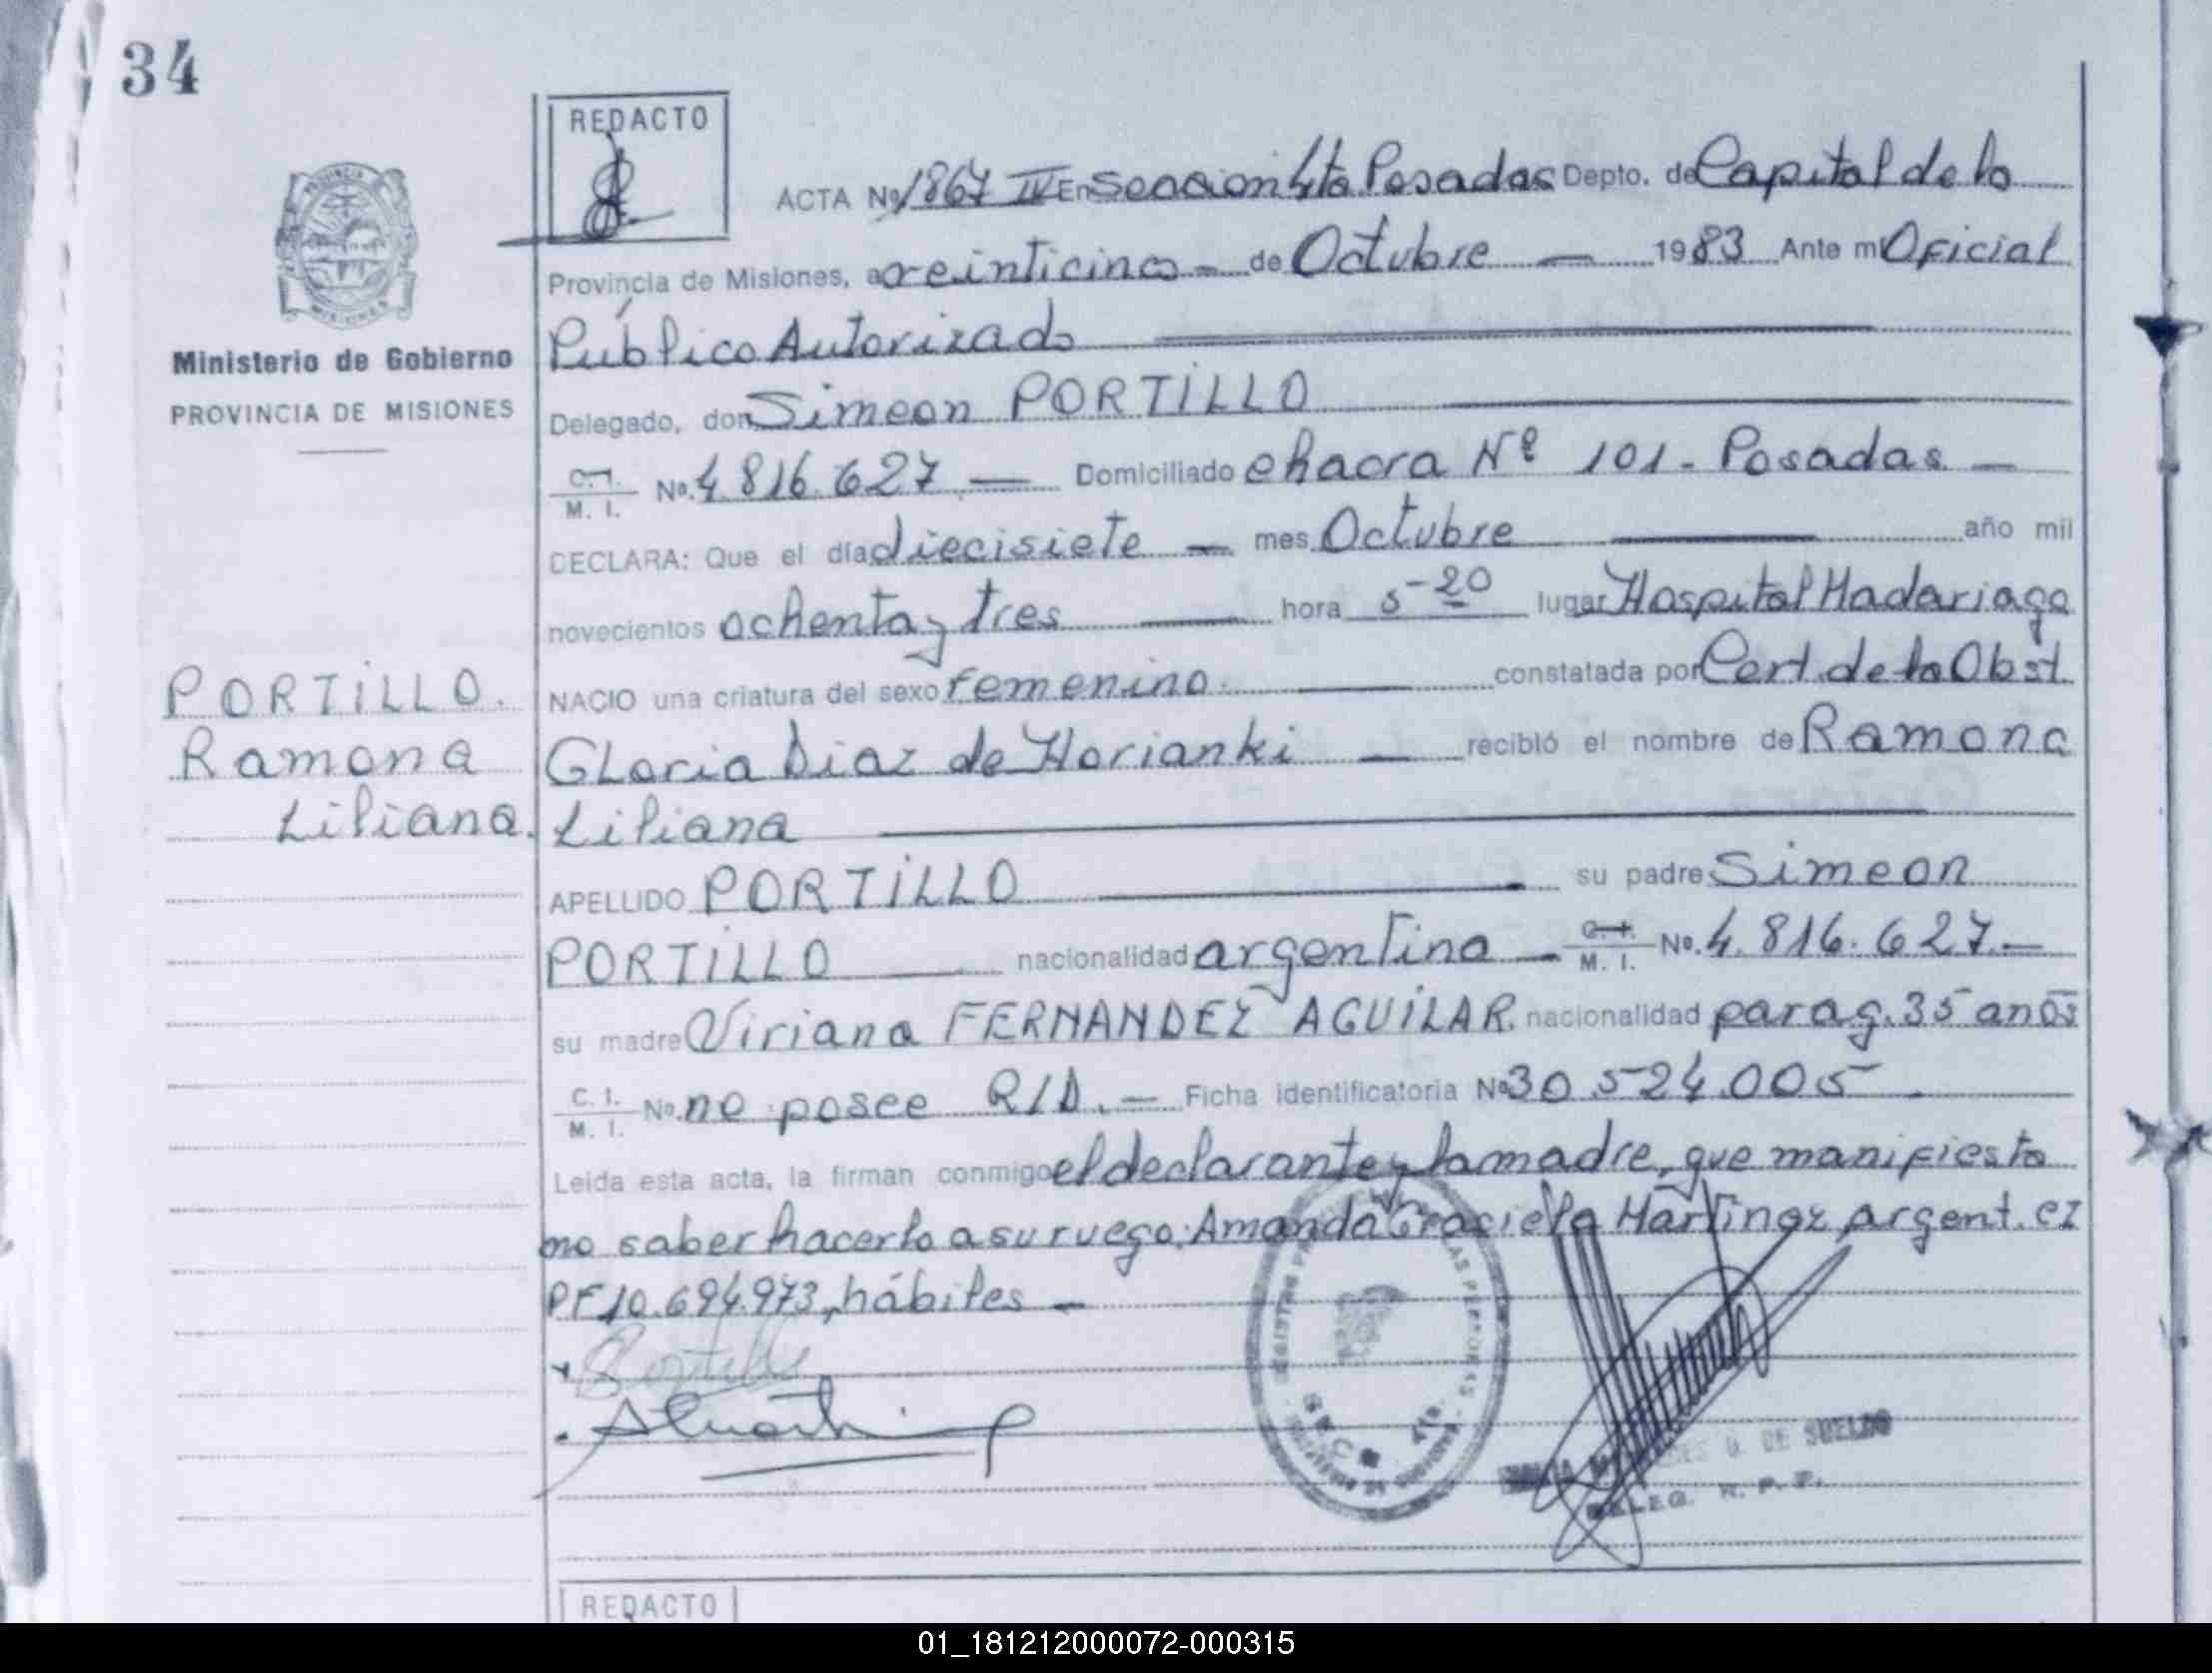 34
REDACTO
ACTA Nº 1867 IV En Seccion 4ta Posadas Depto. de Capital de la
PROVINCIA DE
MISIONES
Provincia de Misiones, a veinticinco - de Octubre — 1983 Ante mi Oficial
Público Autorizado
Ministerio de Gobierno
PROVINCIA DE MISIONES
Delegado, don Simeon PORTILLO
C. I. M. I. No. 4.816.627 — Domiciliado chacra Nº 101 - Posadas —
DECLARA: Que el día diecisiete — mes Octubre — año mil
novecientos ochenta y tres — hora 5-20 lugar Hospital Madariaga
PORTILLO.
Ramona
Liliana.
NACIO una criatura del sexo femenino. — constatada por Cert. de la Obst.
Gloria Diaz de Horianki — recibió el nombre de Ramona
Liliana
APELLIDO PORTILLO — su padre Simeon
PORTILLO — nacionalidad argentina — C. I. M. I. No. 4.816.627.—
su madre Viriana FERNANDEZ AGUILAR. nacionalidad parag. 35 años
C. I. M. I. No. no posee R/D. — Ficha identificatoria Nº 30.524.005 -
Leída esta acta, la firman conmigo el declarante y la madre, que manifiesta
no saber hacerlo a su ruego: Amanda Graciela Martinez argent. CI
PF 10.694.973, hábiles —
Portillo
SECC. 4ta.
D. DE SUELDO
DELEG. R. P. P.
REDACTO
01_181212000072-000315